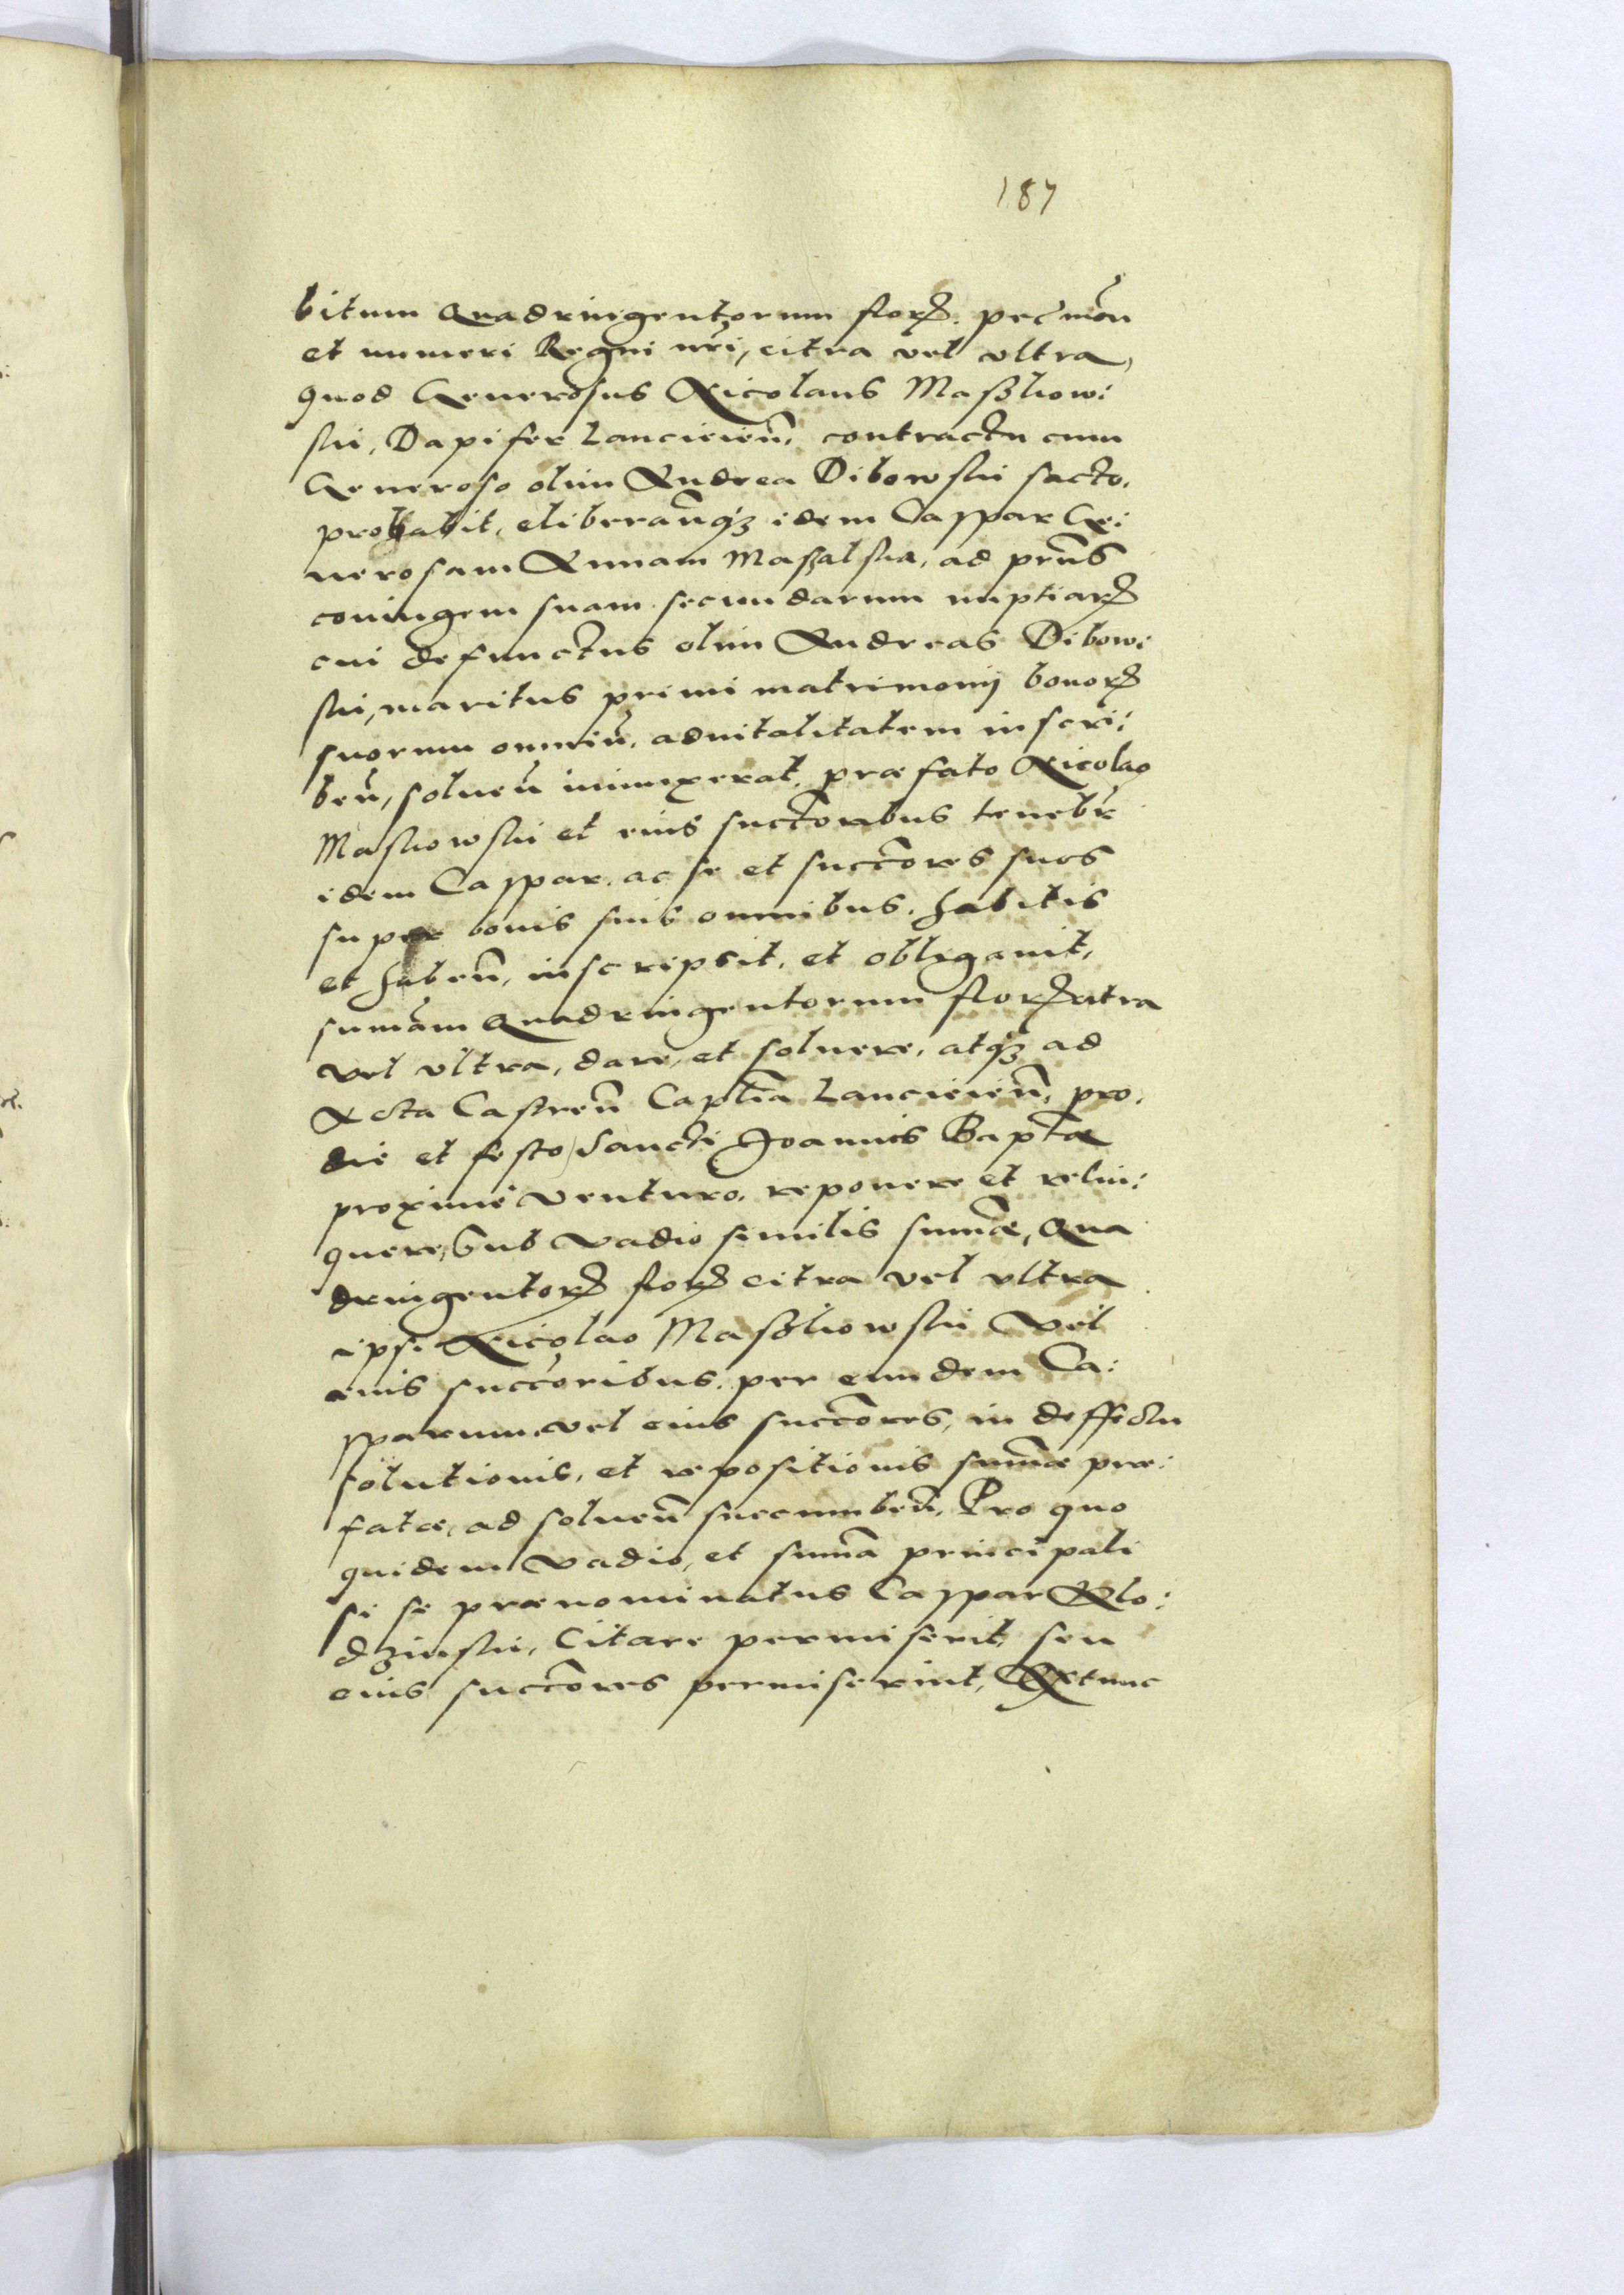 187
bitum Quadringentorum flor. pec mon
et numeri Regni nri, citra vel vltra,
quod Generosus Nicolaus Maszkow:
ski, Dapifer Lanciciеn. contractu cum
Generoso olim Andrea Dibowski facto,
probabit, eliberanqz idem Caspar Ge:
nerosam Annam Maszalska, ad prns
coniugem suam secundarum nuptiar
cui defunctus olim Andreas Dibow:
ski, maritus primi matrimonij bonor
suorum omniu, aduitalitatem inscri:
ben, soluen iniunxerat, præfato Nicolao
Maskowski et eius succtoribus tenebr
idem Caspar, ac se et succores suos
super bonis suis omnibus, habitis
et haben, inscripsit, et obligauit,
sumam Quadringentorum flor citra
vel vltra, dare, et soluere, atqz ad
Acta Castren Captia Lancicien, pro
die et festo Sancti Joannis Baptæ
proximè venturo, reponere et relin:
quere, sub vadio similis summæ, Qua
dringentor flor citra vel vltra
ipsi Nicolao Maszkowski vel
euis succoribus, per eundem Ca:
sparum, vel eius succores, in deffectu
solutionis, et repositionis summæ præ:
fatæ, ad soluen succumben, Pro quo
quidem vadio, et summa principali
si se prænominatus Caspar Klo:
dzinski, Citare permiserit, seu
eius succores permiserint, Extunc